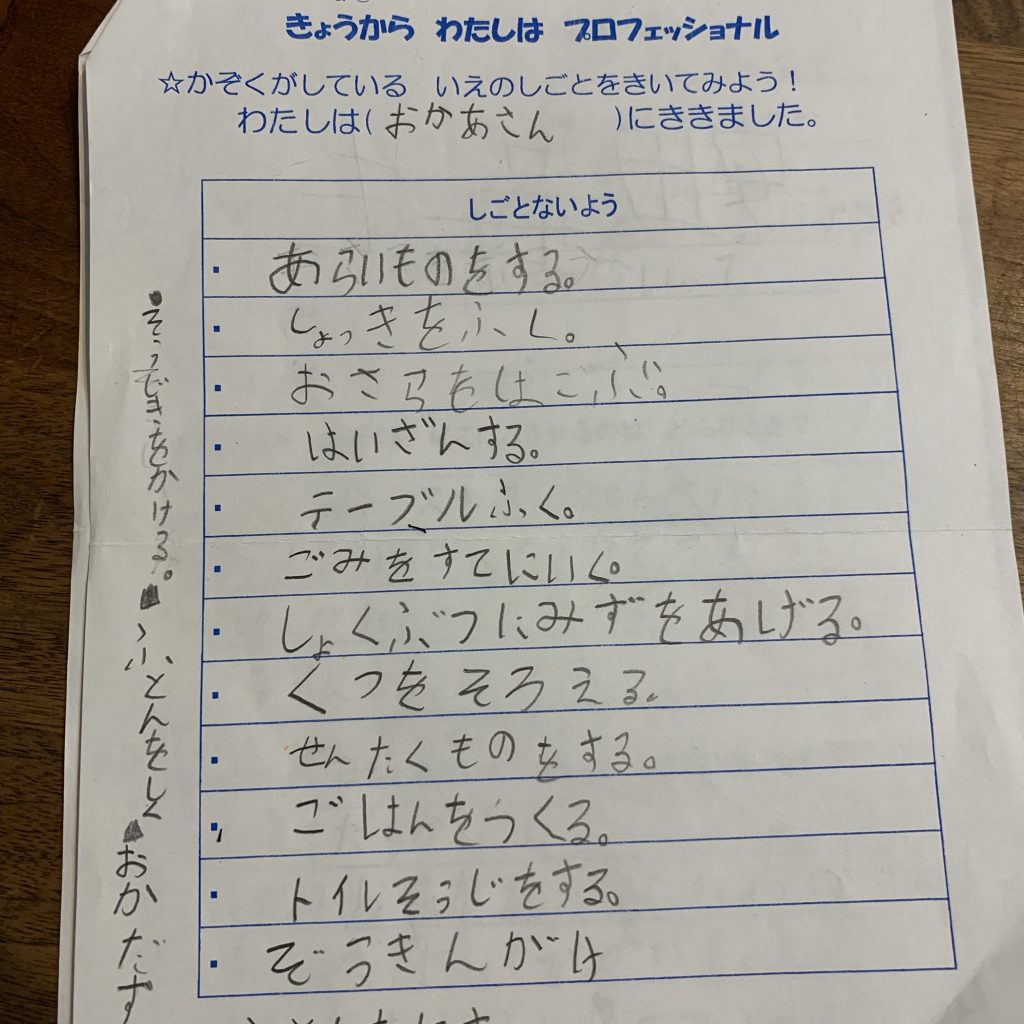 きょうから わたしは プロフェッショナル
☆かぞくがしている いえのしごとをきいてみよう！
わたしは(おかあさん)にききました。
しごとないよう
・あらいものをする。
・しょっきをふく。
・おさらもはこぶ。
・はいざんする。
・テーブルふく。
・ごみをすてにいく。
・しょくぶつにみずをあげる。
・くつをそろえる。
・せんたくものをする。
・ごはんをつくる。
・トイレそうじをする。
・ぞうきんがけ
・そうじきをかける。
ふとんをしく
おかだす